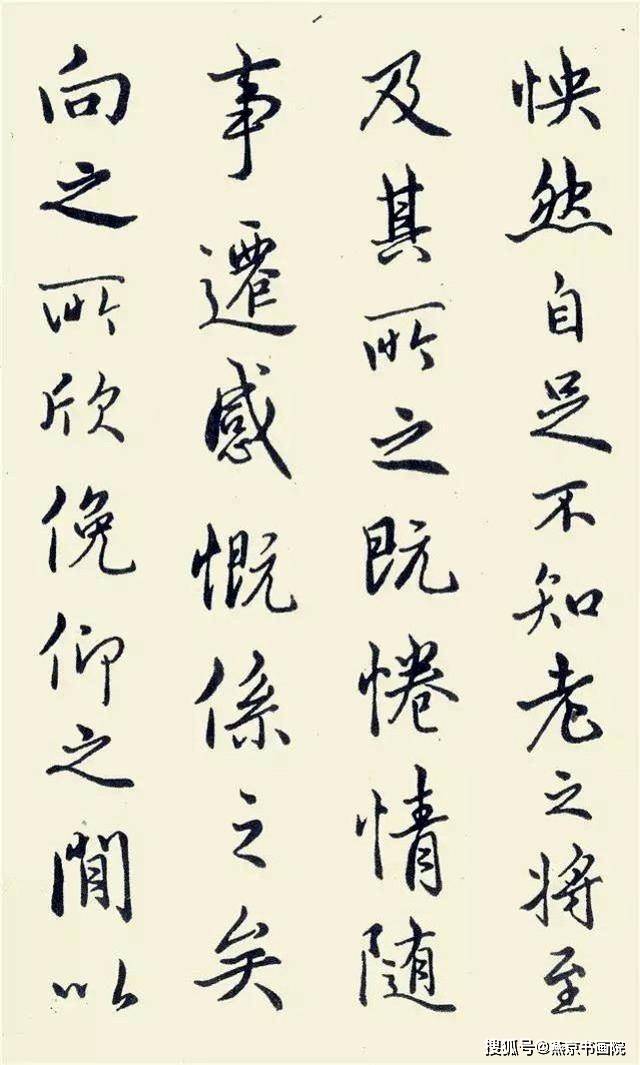 怏然自足不知老之将至
及其所之既惓情随
事遷感慨係之矣
向之所欣俛仰之閒以
搜狐号@燕京书画院